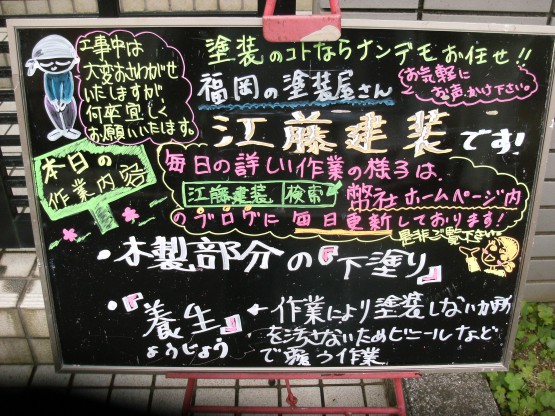 工事中は
大変おさわがせ
いたしますが
何卒宜しく
お願いいたします。
塗装のコトならナンデモお任せ!!
福岡の塗装屋さん
お気軽に
お声かけ下さい。
江藤建装です!
本日の
作業内容
毎日の詳しい作業の様子は、
江藤建装 検索 弊社ホームページ内
のブログに毎日更新しております!
是非ご覧下さい
・木製部分の『下塗り』
・『養生』←作業により塗装しないか所
ようじょう
を汚さないためビニールなど
で覆う作業